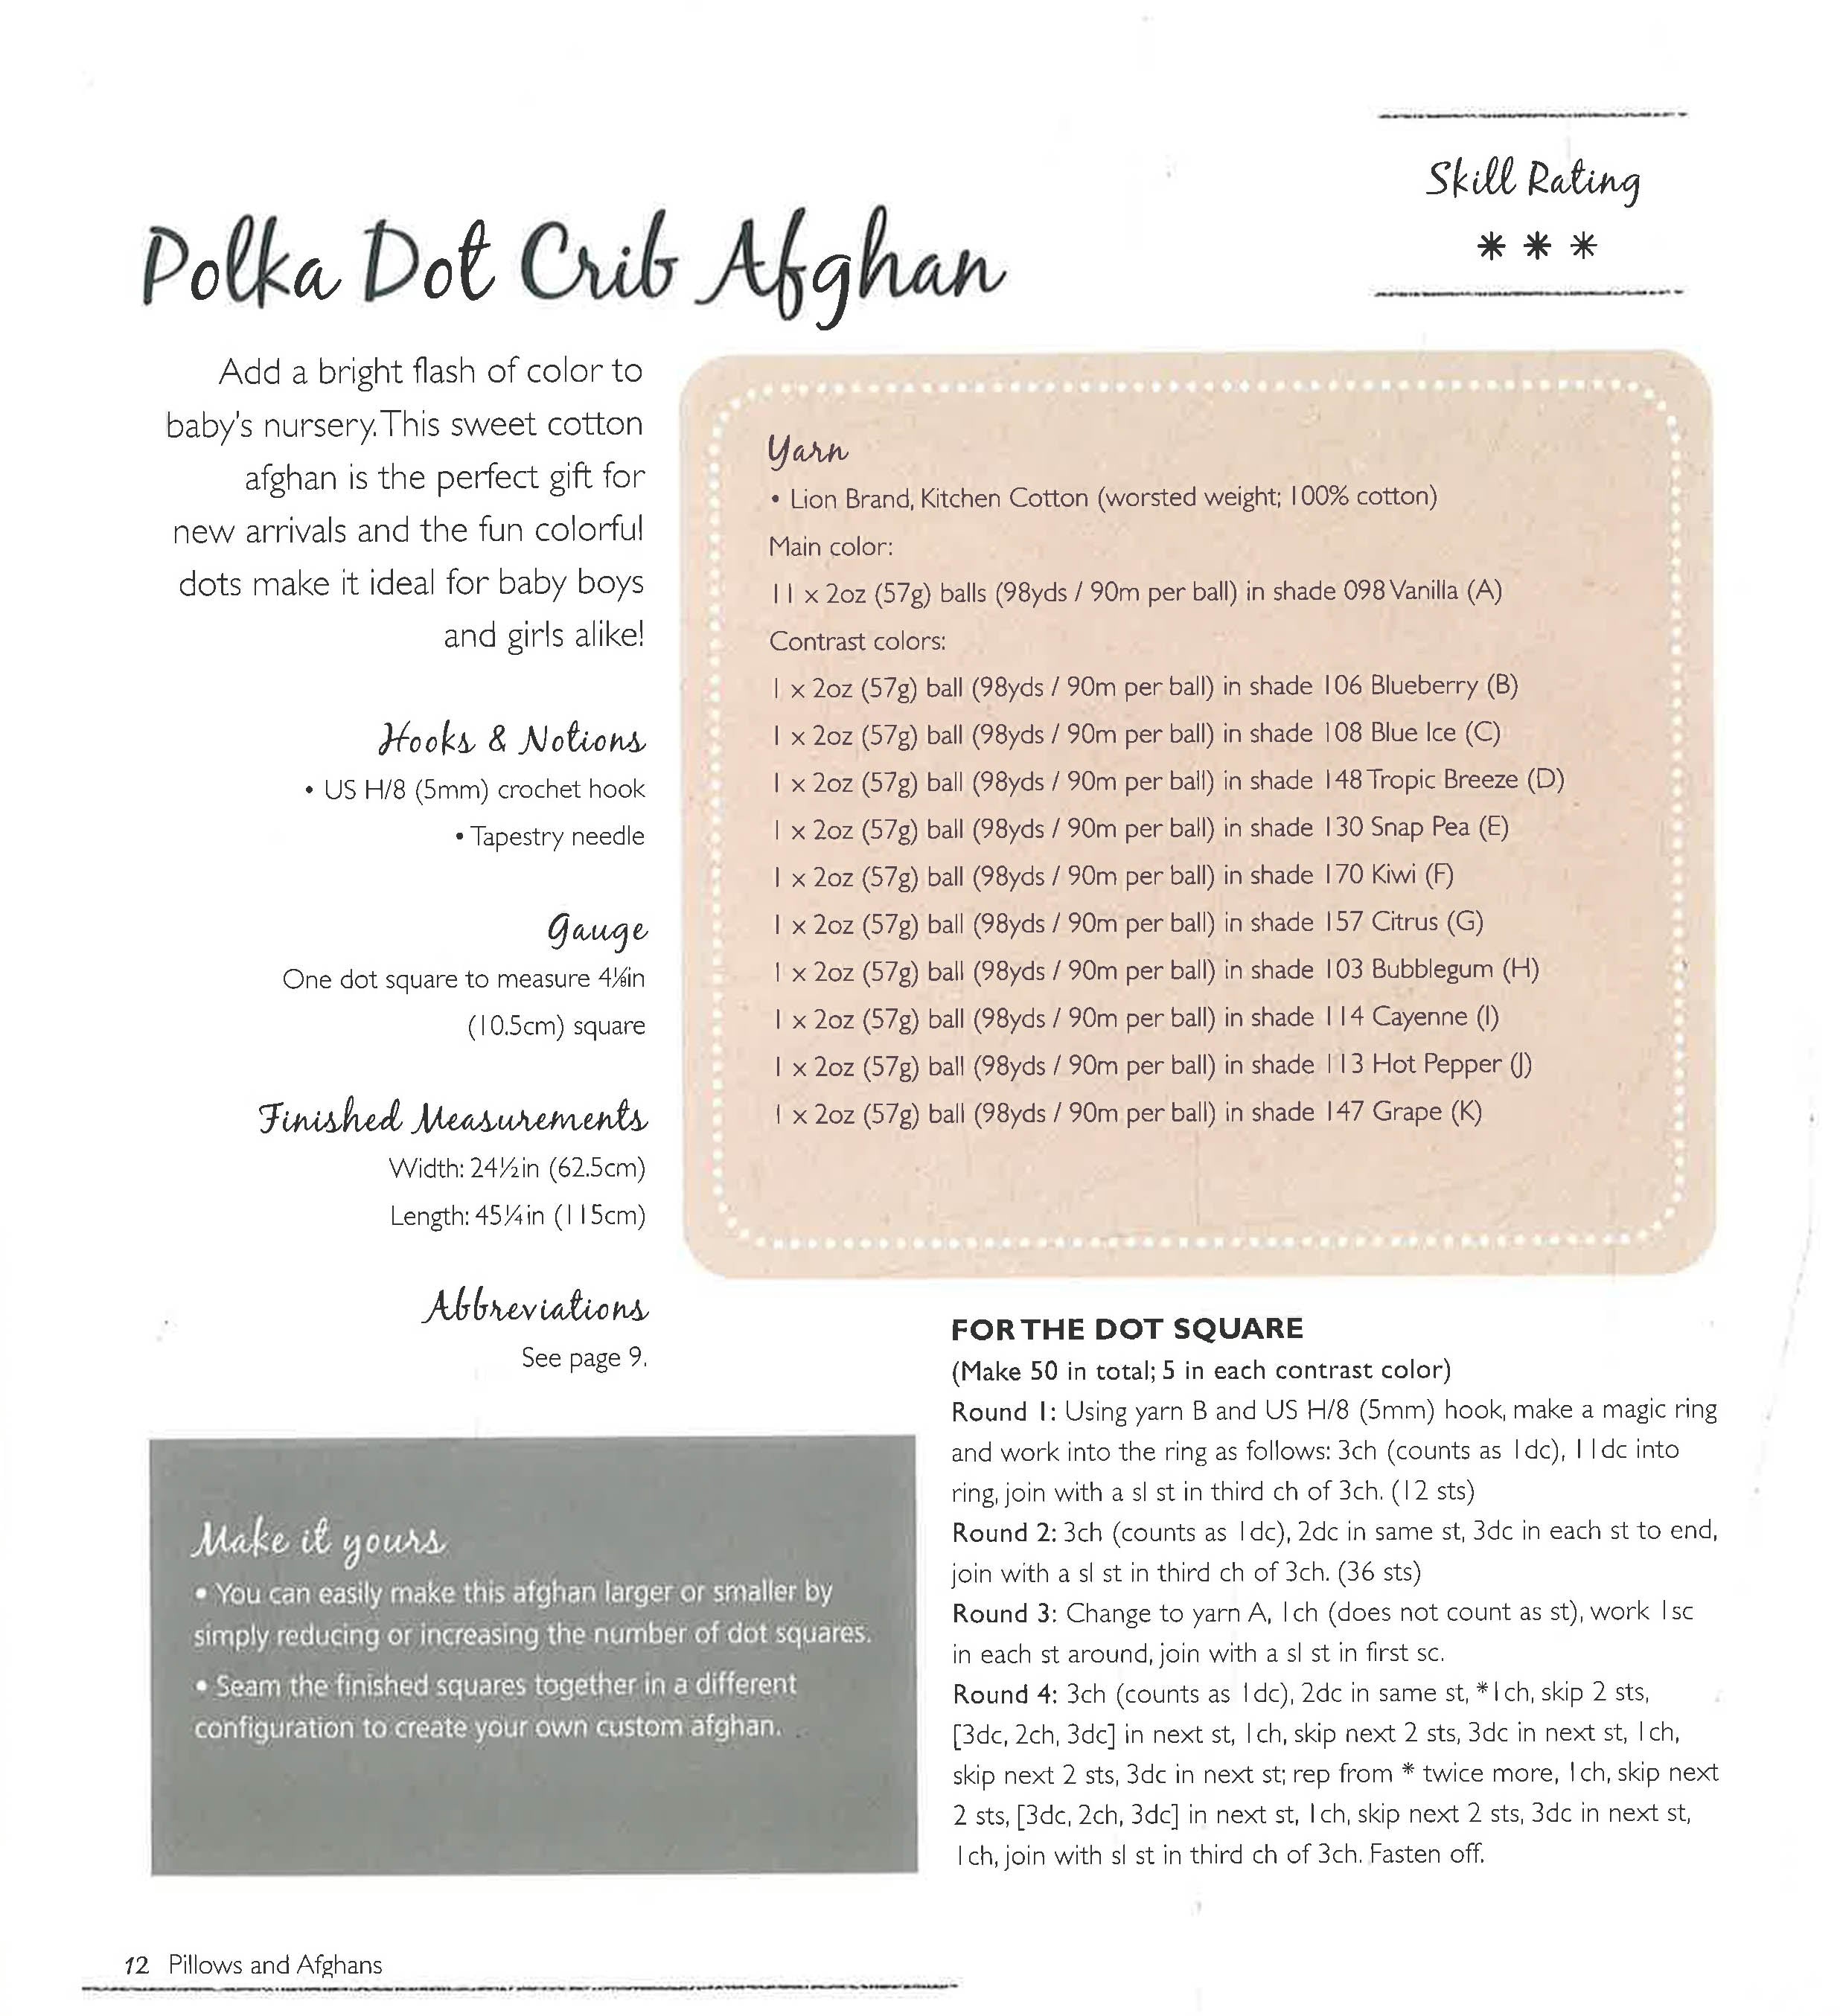 Skill Rating
* * *
Polka Dot Crib Afghan
Add a bright flash of color to
baby's nursery. This sweet cotton
afghan is the perfect gift for
new arrivals and the fun colorful
dots make it ideal for baby boys
and girls alike!
Hooks & Notions
• US H/8 (5mm) crochet hook
• Tapestry needle
Gauge
One dot square to measure 4⅛in
(10.5cm) square
Finished Measurements
Width: 24½in (62.5cm)
Length: 45¼in (115cm)
Abbreviations
See page 9.
Yarn
• Lion Brand, Kitchen Cotton (worsted weight; 100% cotton)
Main color:
11 x 2oz (57g) balls (98yds / 90m per ball) in shade 098 Vanilla (A)
Contrast colors:
1 x 2oz (57g) ball (98yds / 90m per ball) in shade 106 Blueberry (B)
1 x 2oz (57g) ball (98yds / 90m per ball) in shade 108 Blue Ice (C)
1 x 2oz (57g) ball (98yds / 90m per ball) in shade 148 Tropic Breeze (D)
1 x 2oz (57g) ball (98yds / 90m per ball) in shade 130 Snap Pea (E)
1 x 2oz (57g) ball (98yds / 90m per ball) in shade 170 Kiwi (F)
1 x 2oz (57g) ball (98yds / 90m per ball) in shade 157 Citrus (G)
1 x 2oz (57g) ball (98yds / 90m per ball) in shade 103 Bubblegum (H)
1 x 2oz (57g) ball (98yds / 90m per ball) in shade 114 Cayenne (I)
1 x 2oz (57g) ball (98yds / 90m per ball) in shade 113 Hot Pepper (J)
1 x 2oz (57g) ball (98yds / 90m per ball) in shade 147 Grape (K)
Make it yours
• You can easily make this afghan larger or smaller by
simply reducing or increasing the number of dot squares.
• Seam the finished squares together in a different
configuration to create your own custom afghan.
FOR THE DOT SQUARE
(Make 50 in total; 5 in each contrast color)
Round 1: Using yarn B and US H/8 (5mm) hook, make a magic ring
and work into the ring as follows: 3ch (counts as 1dc), 11dc into
ring, join with a sl st in third ch of 3ch. (12 sts)
Round 2: 3ch (counts as 1dc), 2dc in same st, 3dc in each st to end,
join with a sl st in third ch of 3ch. (36 sts)
Round 3: Change to yarn A, 1ch (does not count as st), work 1sc
in each st around, join with a sl st in first sc.
Round 4: 3ch (counts as 1dc), 2dc in same st, *1ch, skip 2 sts,
[3dc, 2ch, 3dc] in next st, 1ch, skip next 2 sts, 3dc in next st, 1ch,
skip next 2 sts, 3dc in next st; rep from * twice more, 1ch, skip next
2 sts, [3dc, 2ch, 3dc] in next st, 1ch, skip next 2 sts, 3dc in next st,
1ch, join with sl st in third ch of 3ch. Fasten off.
12 Pillows and Afghans